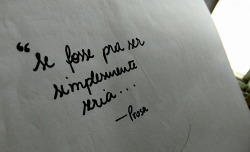 “se fosse pra ser
simplesmente
seria...
—Prosa